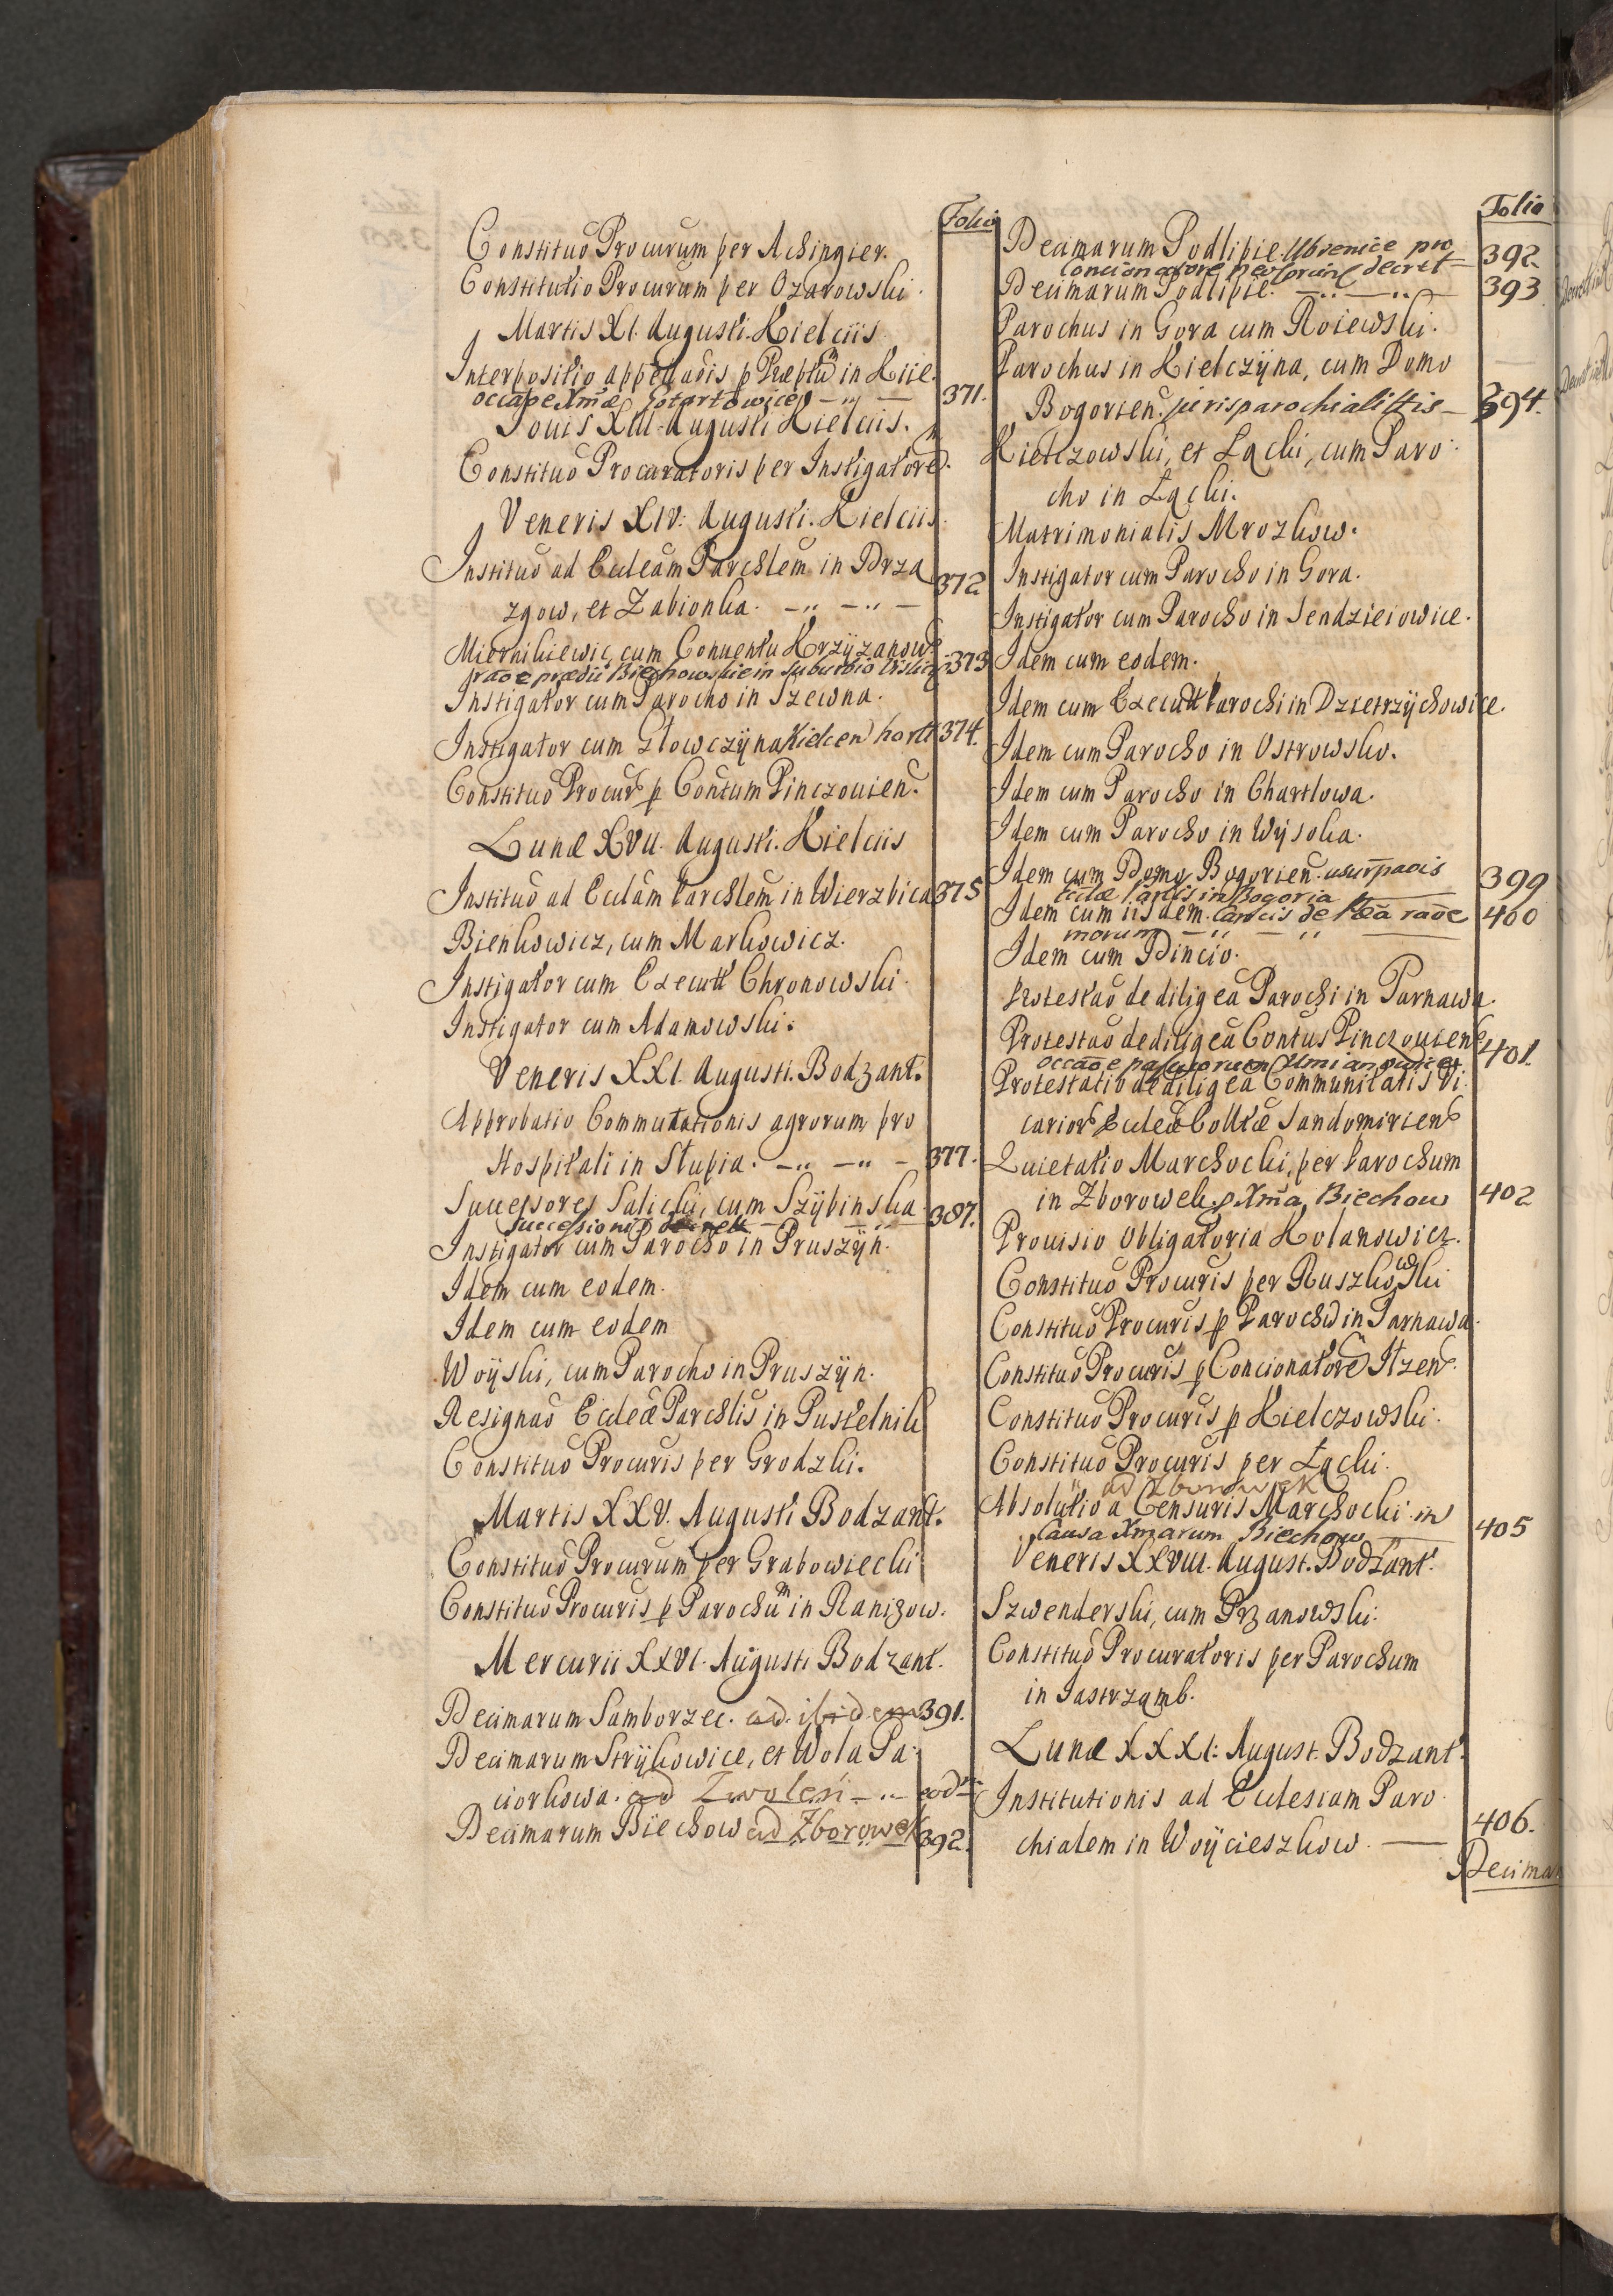 Folio
Constituo Procurum per Achingier.
Constitutio Procurum per Ozarowski.
Martis XI. Augusti. Kielciis
Interpositio appellaois p Præptu͂m in Kiie.
371.
Jouis XIII. Augusti Kielciis.
Constituo Procuratoris per Instigatore͂.
Veneris XIV. Augusti. Kielciis.
Instituo ad Ecclea͂m Parchlem in Drza
zgow, et Zabionka. -"-"- 372
Miernikiewic, cum Conuentu Krzÿzanow
raoe prædii Biechowskie in suburbio Vislici 373
Instigator cum Parocho in Szewna.
Instigator cum Łowczÿna Kielcen horti 374.
Constituo Procur p Contum Pinczouien.
Lunæ XVII. Augusti. Kielciis
Instituo ad Ecclam Parchlem in Wierzbica 375
Bienkowicz, cum Markowicz.
Instigator cum Execut Chronowski.
Instigator cum Adamowski.
Veneris XXI. Augusti. Bodzant.
Approbatio Commutationis agrorum pro
Hospitali in Słupia. -"-"- 377.
Successores Salicki, cum Szÿbinska 387.
Successionis
Instigator cum Parocho in Pruszÿn.
Idem cum eodem.
Idem cum eodem
Woÿski, cum Parocho in Pruszÿn.
Resignao Eccleæ Parchlis in Pustelnik
Constituo Procuris per Grodzki.
Martis XXV. Augusti Bodzant.
Constituo Procurum per Grabowiecki
Constituo Procuris p Parochu͂m in Ranizow.
Mercurii XXVI. Augusti Bodzant.
Decimarum Samborzec. ad ibidem 391.
Decimarum Strÿkowice, et Wola Pa.
ciorkowa. ad Zwoleń -"- eod
Decimarum Biechow ad Zborowek 392.
Folio
Decimarum Podlipie Ubrenice pro 392.
Concionatore decret
Decimarum Podlipie. -"-"- 393
Parochus in Gora cum Roiewski.
Parochus in Kielczÿna, cum Domo
Bogorien. juris parochialis 394.
Kiełczowski, et Łącki, cum Paro.
cho in Łącki.
Matrimonialis Mrozkow.
Instigator cum Parocho in Gora.
Instigator cum Parocho in Sendzieiowice.
Idem cum eodem.
Idem cum Execut Parochi in Dzietrzÿchowice.
Idem cum Parocho in Ostrowsko.
Idem cum Parocho in Chartlowa.
Idem cum Parocho in Wÿsoka.
Idem cum Domo Bogorien. usurpaois 399
Cclæ Parlis in Bogoria
Idem cum iisdem. raoe 400
morum -"-"-
Idem cum Dincio.
Protestao de diligea Parochi in Tarnawa.
Protestao de diligea Contus Pinczouien 401.
Protestatio de diligea Communitatis Vi.
carior Eccleæ Collæ Sandomirien
Quietatio Marchocki, per Parochum
in Zborowek p Xma Biechow 402
Prouisio Obligatoria Kolanowicz.
Constituo Procuris per Ruszkowski
Constituo Procuris p Parochu in Tarnawa.
Constituo Procuris p Concionatore Ilzen.
Constituo Procuris p Kielczowski.
Constituo Procuris per Łącki.
ad Zborowek
Absolutio a Censuris Marchocki. in
Causa Xmarum Biechow 405
Veneris XXVIII. August. Bodzant.
Szwenderski, cum Przanowski.
Constituo Procuratoris per Parochum
in Jastrzamb.
Lunæ XXXI. August. Bodzant.
Institutionis ad Ecclesiam Paro.
chialem in Woÿcieszkow. 406.
Decimar